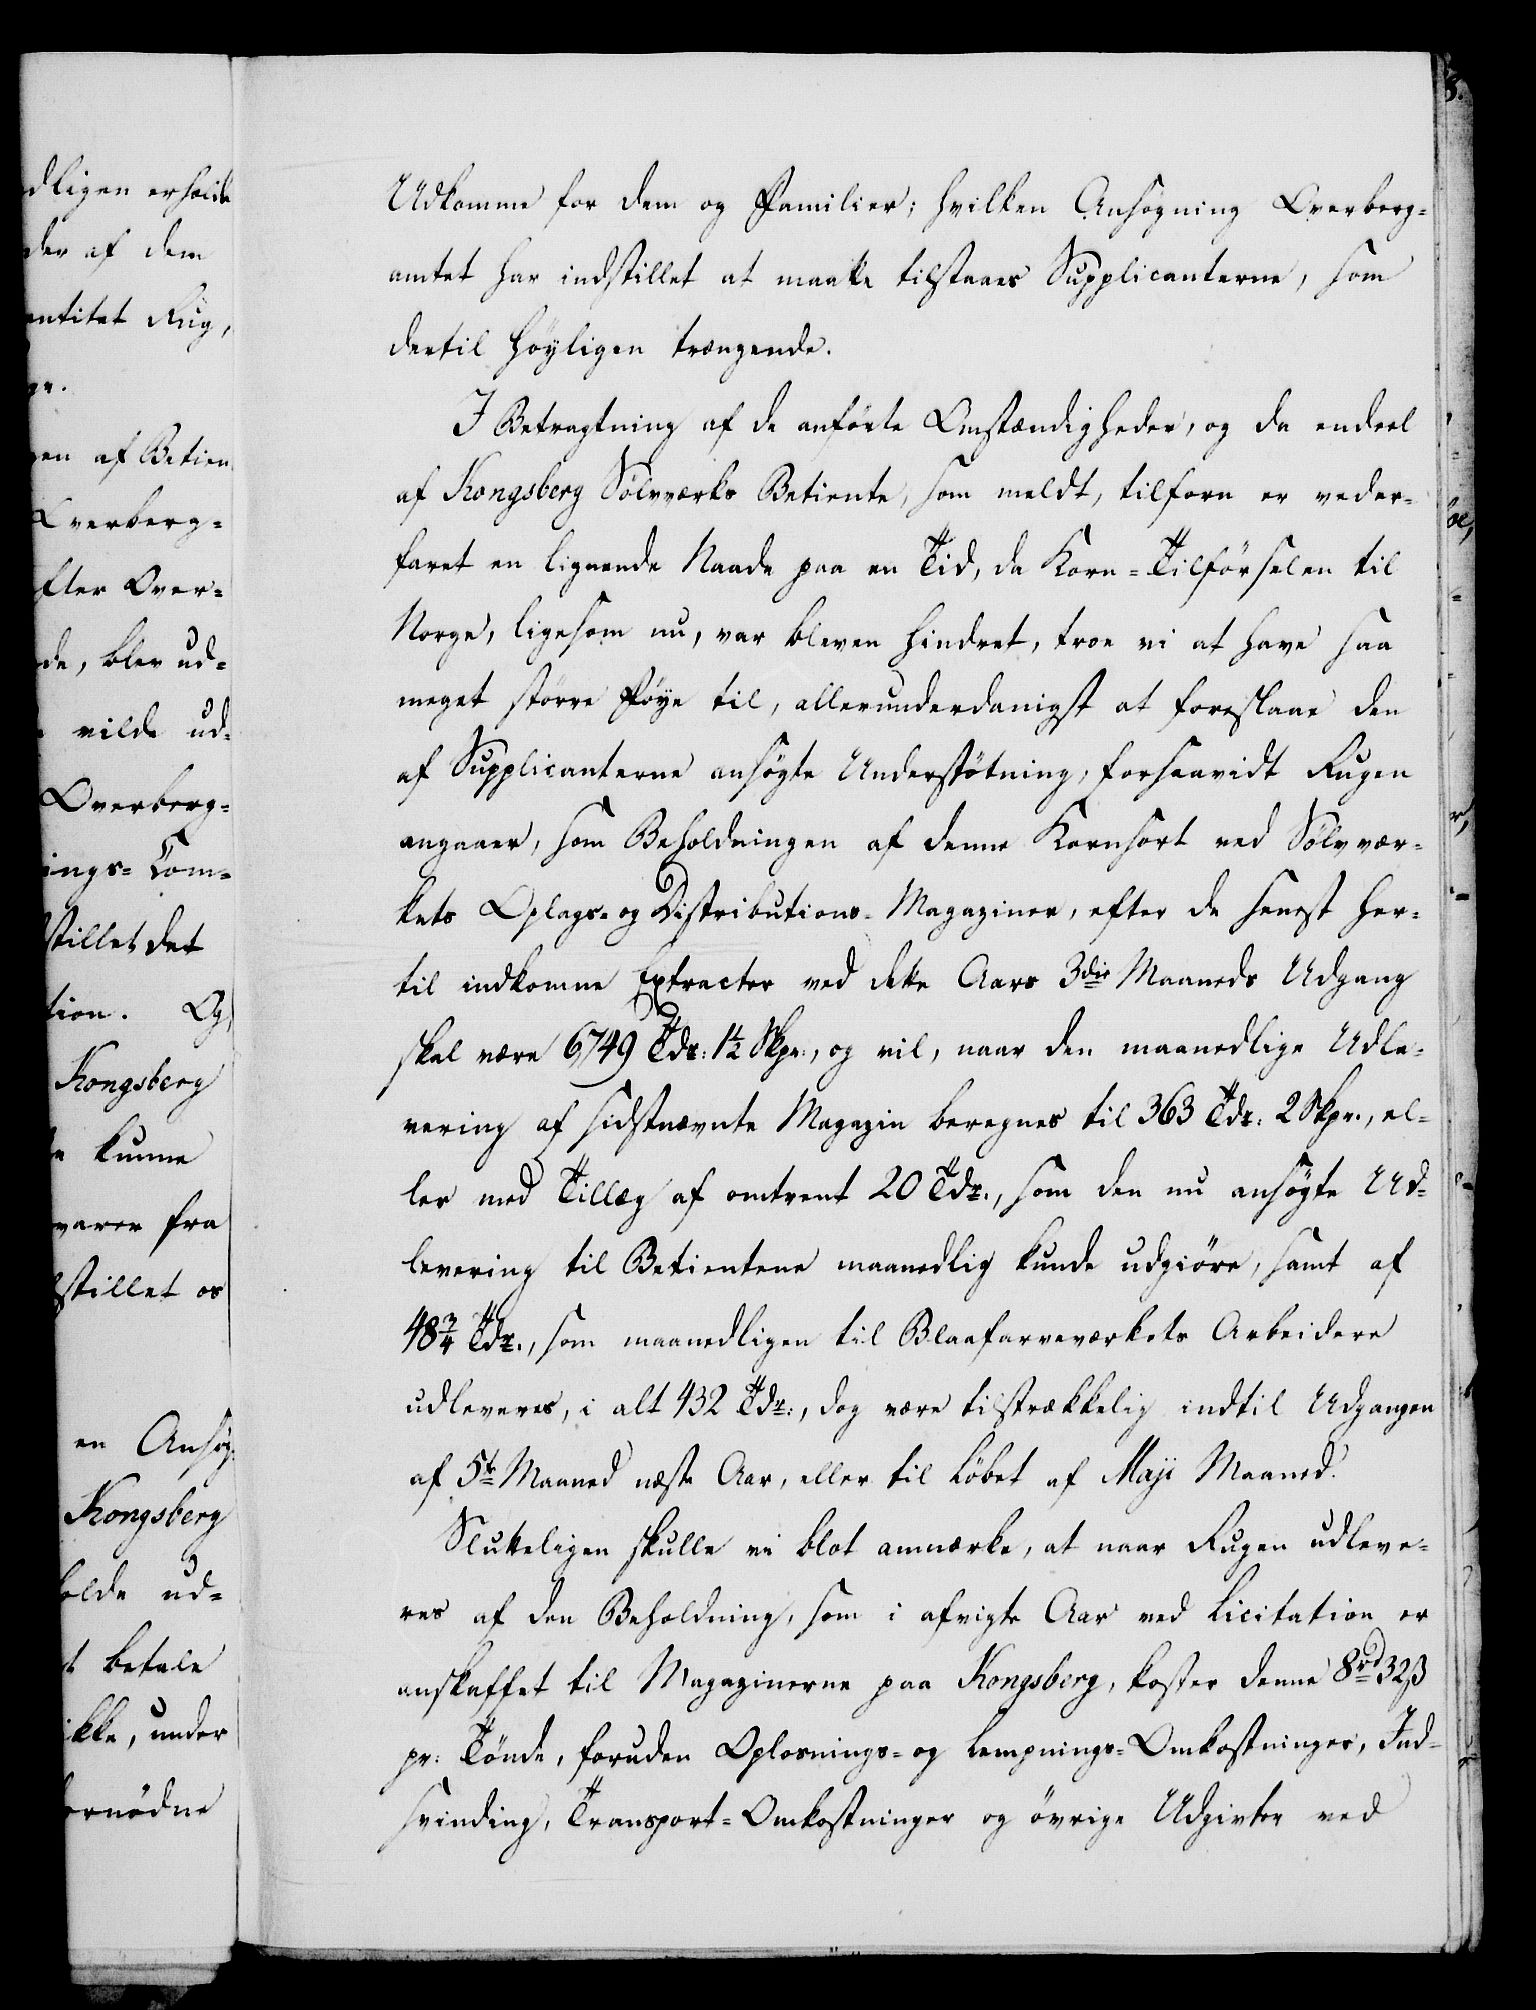 dligen erholde
der af dem
antitet Rug,
gen af Betien
Overberg-
fter Over-
de, blev ud-
vilde ud-
Overberg-
ings-Com-
stillet det
tion. Og
Kongsberg
kunne
varer fra
stillet os
en Ansøg-
Kongsberg
olde ud-
betale
ikke, under
ornödne
Udkomme for dem og Familier; hvilken Ansøgning Overberg-
amtet har indstillet at maatte tilstaaes Supplicanterne, som
dertil höyligen trængende.
I Betragtning af de anförte Omstændigheder, og da endeel
af Kongsberg Sölvværks Betiente, som meldt, tilforn er veder-
faret en lignende Naade paa en Tid, da Korn-Tilförselen til
Norge, ligesom nu, var bleven hindret, troe vi at have saa
meget större Föye til, allerunderdanigst at foreslaae den
af Supplicanterne ansögte Understötning, forsaavidt Rugen
angaaer, som Beholdningen af denne Kornsort ved Sölvvær-
kets Oplags- og Distributions-Magaziner, efter de senest her-
til indkomne Extracter ved dette Aars 3die Maaneds Udgang
skal være 6749 Tdr: 1½ Skpr., og vil, naar den maanedlige Udle-
vering af sidstnævnte Magazin beregnes til 363 Tdr: 2 Skpr., el-
ler med Tillæg af omtrent 20 Tdr., som den nu ansögte Ud-
levering til Betientene maanedlig kunde udgiöre, samt af
48¾ Tdr., som maanedligen til Blaafarveværkets Arbeidere
udleveres, i alt 432 Tdr:, dog være tilstrækkelig indtil Udgangen
af 5te Maaned næste Aar, eller til Löbet af Maji Maaned.
Slutteligen skulle vi blot anmærke, at naar Rugen udleve-
res af den Beholdning, som i afvigte Aar ved Licitation er
anskaffet til Magazinerne paa Kongsberg, koster denne 8rd 32ß
pr: Tönde, foruden Oplosnings- og Lempnings-Omkostninger, Ind-
svinding, Transport-Omkostninger og övrige Udgivter ved